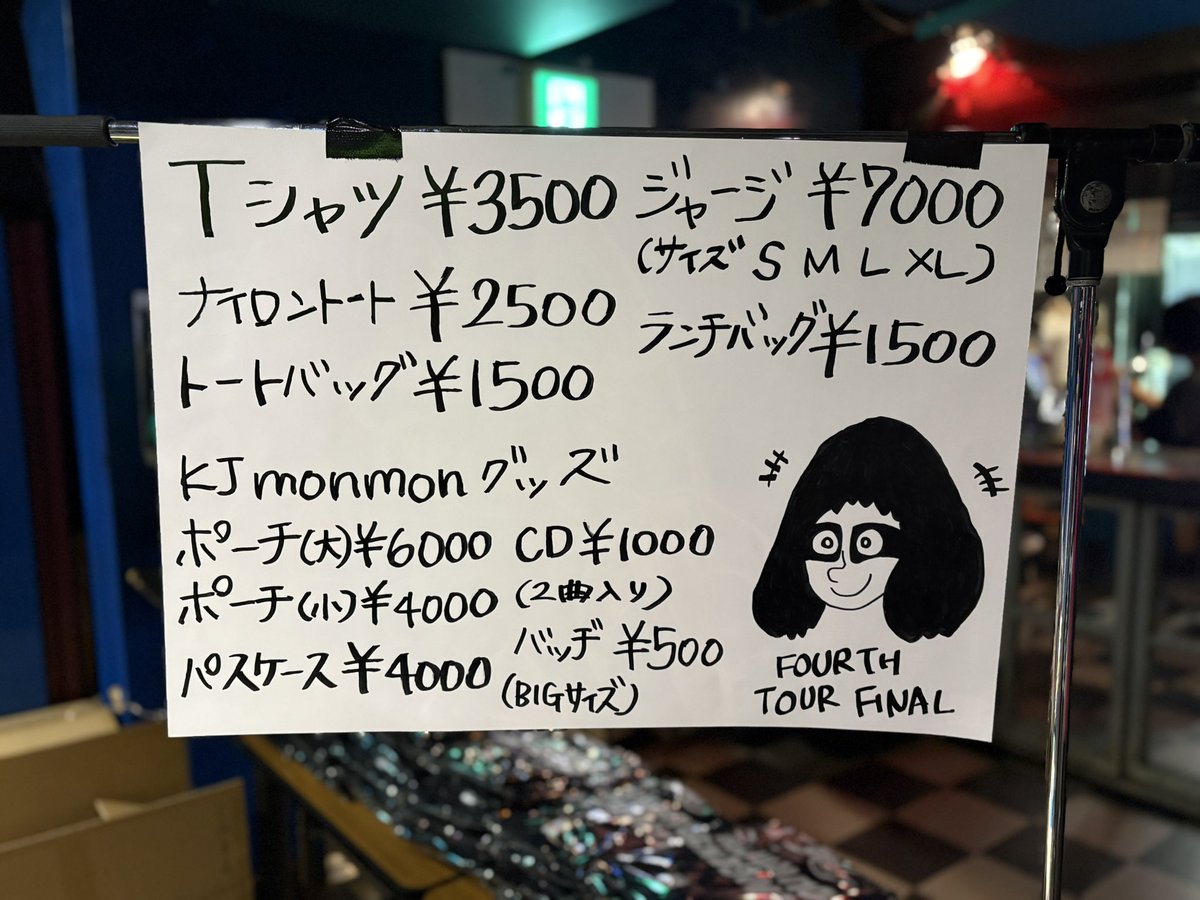 Tシャツ ¥3500
ナイロントート ¥2500
トートバッグ ¥1500
ジャージ ¥7000
(サイズ S M L XL)
ランチバッグ ¥1500
KJ monmon グッズ
ポーチ(大) ¥6000
ポーチ(小) ¥4000
パスケース ¥4000
CD ¥1000
(2曲入り)
バッヂ ¥500
(BIGサイズ)
FOURTH
TOUR FINAL